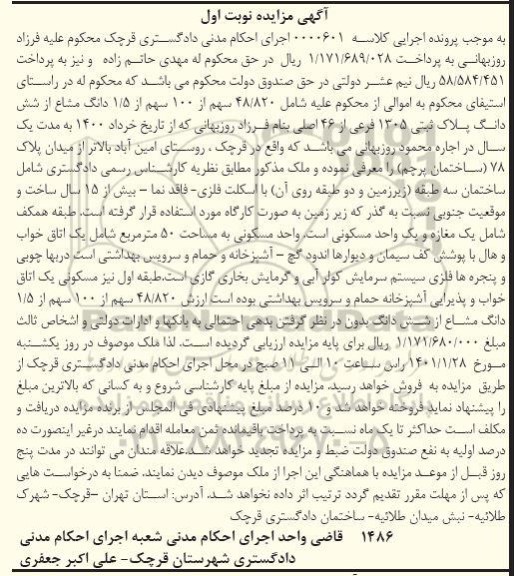 آگهی مزایده نوبت اول
به موجب پرونده اجرایی کلاسه ۰۰۰۰۶۰۱ اجرای احکام مدنی دادگستری قرچک محکوم علیه فرزاد
روزبهانی به پرداخت ۱/۱۷۱/۶۸۹/۰۲۸ ریال در حق محکوم له مهدی حاتم زاده و نیز به پرداخت
۵۸/۵۸۴/۴۵۱ ریال نیم عشر دولتی در حق صندوق دولت محکوم می باشد که محکوم له در راستای
استیفای محکوم به اموالی از محکوم علیه شامل ۴۸/۸۲۰ سهم از ۱۰۰ سهم از ۱/۵ دانگ مشاع از شش
دانگ پلاک ثبتی ۱۳۰۵ فرعی از ۴۶ اصلی بنام فرزاد روزبهانی که از تاریخ خرداد ۱۴۰۰ به مدت یک
سال در اجاره محمود روزبهانی می باشد که واقع در قرچک ، روستای امین آباد بالاتر از میدان پلاک
۷۸ (ساختمان پرچم) را معرفی نموده و ملک مذکور مطابق نظریه کارشناس رسمی دادگستری شامل
ساختمان سه طبقه (زیرزمین و دو طبقه روی آن) با اسکلت فلزی- فاقد نما – بیش از ۱۵ سال ساخت و
موقعیت جنوبی نسبت به گذر که زیر زمین به صورت کارگاه مورد استفاده قرار گرفته است. طبقه همکف
شامل یک مغازه و یک واحد مسکونی است. واحد مسکونی به مساحت ۵۰ مترمربع شامل یک اتاق خواب
و هال با پوشش کف سیمان و دیوارها اندود گچ – آشپزخانه و حمام و سرویس بهداشتی است دربها چوبی
و پنجره ها فلزی سیستم سرمایش کولر آبی و گرمایش بخاری گازی است.طبقه اول نیز مسکونی یک اتاق
خواب و پذیرایی آشپزخانه حمام و سرویس بهداشتی بوده است ارزش ۴۸/۸۲۰ سهم از ۱۰۰ سهم از ۱/۵
دانگ مشاع از شش دانگ بدون در نظر گرفتن بدهی احتمالی به بانکها و ادارات دولتی و اشخاص ثالث
مبلغ ۱/۱۷۱/۶۸۰/۰۰۰ ریال برای پایه مزایده ارزیابی گردیده است. لذا ملک موصوف در روز یکشنبه
مورخ ۱۴۰۱/۱/۲۸ راس ساعت ۱۰ الی ۱۱ صبح در محل اجرای احکام مدنی دادگستری قرچک از
طریق مزایده به فروش خواهد رسید. مزایده از مبلغ پایه کارشناسی شروع و به کسانی که بالاترین مبلغ
را پیشنهاد نماید فروخته خواهد شد و ۱۰ درصد مبلغ پیشنهادی فی المجلس از برنده مزایده دریافت و
مکلف است حداکثر تا یک ماه نسبت به پرداخت باقیمانده ثمن معامله اقدام نمایند درغیر اینصورت ده
درصد اولیه به نفع صندوق دولت ضبط و مزایده تجدید خواهد شد.علاقه مندان می توانند در مدت پنج
روز قبل از موعد مزایده با هماهنگی این اجرا از ملک موصوف دیدن نمایند. ضمنا به درخواست هایی
که پس از مهلت مقرر تقدیم گردد ترتیب اثر داده نخواهد شد. آدرس: استان تهران –قرچک- شهرک
طلائیه- نبش میدان طلائیه- ساختمان دادگستری قرچک
۱۴۸۶ قاضی واحد اجرای احکام مدنی شعبه اجرای احکام مدنی
دادگستری شهرستان قرچک- علی اکبر جعفری
۰۲۱-۸۸۳۴۹۶۷۰-۵